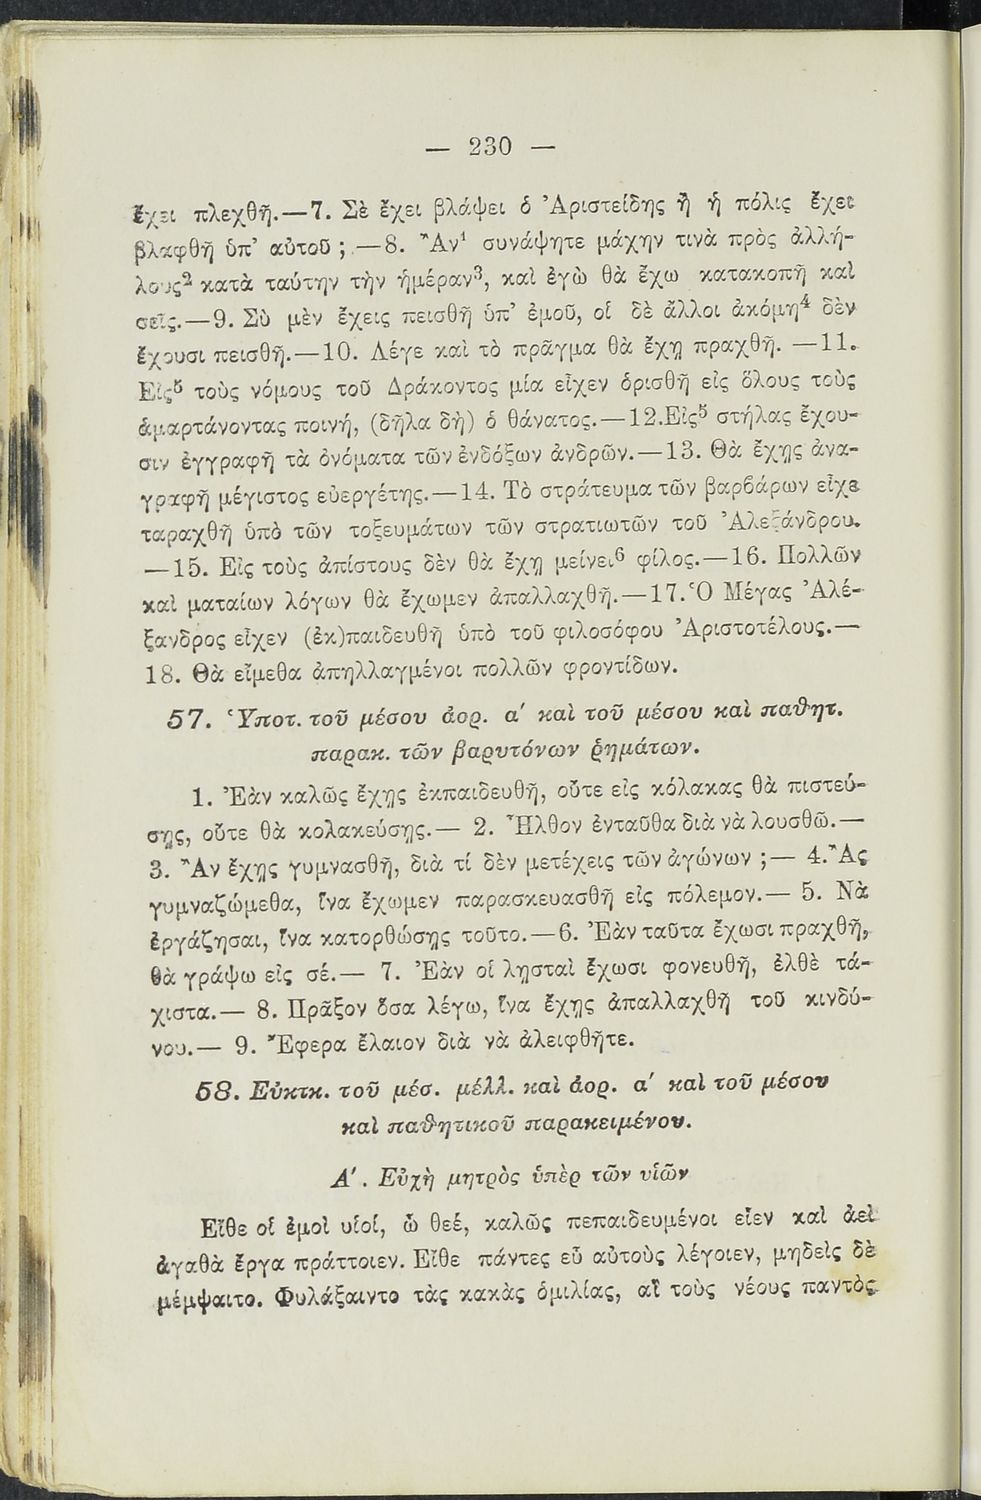 — 230 —
ἔχει πλεχθῆ.—7. Σὲ ἔχει βλάψει ὁ Ἀριστείδης ἢ ἡ πόλις ἔχει
βλαφθῆ ὑπ’ αὐτοῦ ;.—8. Ἂν¹ συνάψητε μάχην τινὰ πρὸς ἀλλή-
λους² κατὰ ταύτην τὴν ἡμέραν³, καὶ ἐγὼ θὰ ἔχω κατακοπῆ καὶ
σεῖς.—9. Σὺ μὲν ἔχεις πεισθῆ ὑπ’ ἐμοῦ, οἱ δὲ ἄλλοι ἀκόμη⁴ δὲν
ἔχουσι πεισθῆ.—10. Λέγε καὶ τὸ πρᾶγμα θὰ ἔχῃ πραχθῆ. —11.
Εἰς⁵ τοὺς νόμους τοῦ Δράκοντος μία εἶχεν ὁρισθῆ εἰς ὅλους τοὺς
ἁμαρτάνοντας ποινή, (δῆλα δὴ) ὁ θάνατος.—12.Εἰς⁵ στήλας ἔχου-
σιν ἐγγραφῆ τὰ ὀνόματα τῶν ἐνδόξων ἀνδρῶν.—13. Θὰ ἔχῃς ἀνα-
γραφῆ μέγιστος εὐεργέτης.—14. Τὸ στράτευμα τῶν βαρβάρων εἶχε
ταραχθῆ ὑπὸ τῶν τοξευμάτων τῶν στρατιωτῶν τοῦ Ἀλεξάνδρου.
—15. Εἰς τοὺς ἀπίστους δὲν θὰ ἔχῃ μείνει⁶ φίλος.—16. Πολλῶν
καὶ ματαίων λόγων θὰ ἔχωμεν ἀπαλλαχθῆ.—17. Ὁ Μέγας Ἀλέ-
ξανδρος εἶχεν (ἐκ)παιδευθῆ ὑπὸ τοῦ φιλοσόφου Ἀριστοτέλους.—
18. Θὰ εἴμεθα ἀπηλλαγμένοι πολλῶν φροντίδων.
57. Ὑποτ. τοῦ μέσου ἀορ. α' καὶ τοῦ μέσου καὶ παθητ.
παρακ. τῶν βαρυτόνων ῥημάτων.
1. Ἐὰν καλῶς ἔχῃς ἐκπαιδευθῆ, οὔτε εἰς κόλακας θὰ πιστεύ-
σῃς, οὔτε θὰ κολακεύσῃς.— 2. Ἦλθον ἐνταῦθα διὰ νὰ λουσθῶ.—
3. Ἂν ἔχῃς γυμνασθῆ, διὰ τί δὲν μετέχεις τῶν ἀγώνων ;— 4. Ἂς
γυμναζώμεθα, ἵνα ἔχωμεν παρασκευασθῆ εἰς πόλεμον.— 5. Νὰ
ἐργάζησαι, ἵνα κατορθώσῃς τοῦτο.—6. Ἐὰν ταῦτα ἔχωσι πραχθῆ,
θὰ γράψω εἰς σέ.— 7. Ἐὰν οἱ λῃσταὶ ἔχωσι φονευθῆ, ἐλθὲ τά-
χιστα.— 8. Πρᾶξον ὅσα λέγω, ἵνα ἔχῃς ἀπαλλαχθῆ τοῦ κινδύ-
νου.— 9. Ἔφερα ἔλαιον διὰ νὰ ἀλειφθῆτε.
58. Εὐκτκ. τοῦ μέσ. μέλλ. καὶ ἀορ. α' καὶ τοῦ μέσου
καὶ παθητικοῦ παρακειμένου.
Α'. Εὐχὴ μητρὸς ὑπὲρ τῶν υἱῶν
Εἴθε οἱ ἐμοὶ υἱοί, ὦ θεέ, καλῶς πεπαιδευμένοι εἶεν καὶ ἀεὶ
ἀγαθὰ ἔργα πράττοιεν. Εἴθε πάντες εὖ αὐτοὺς λέγοιεν, μηδεὶς δὲ
μέμψαιτο. Φυλάξαιντο τὰς κακὰς ὁμιλίας, αἳ τοὺς νέους παντὸς